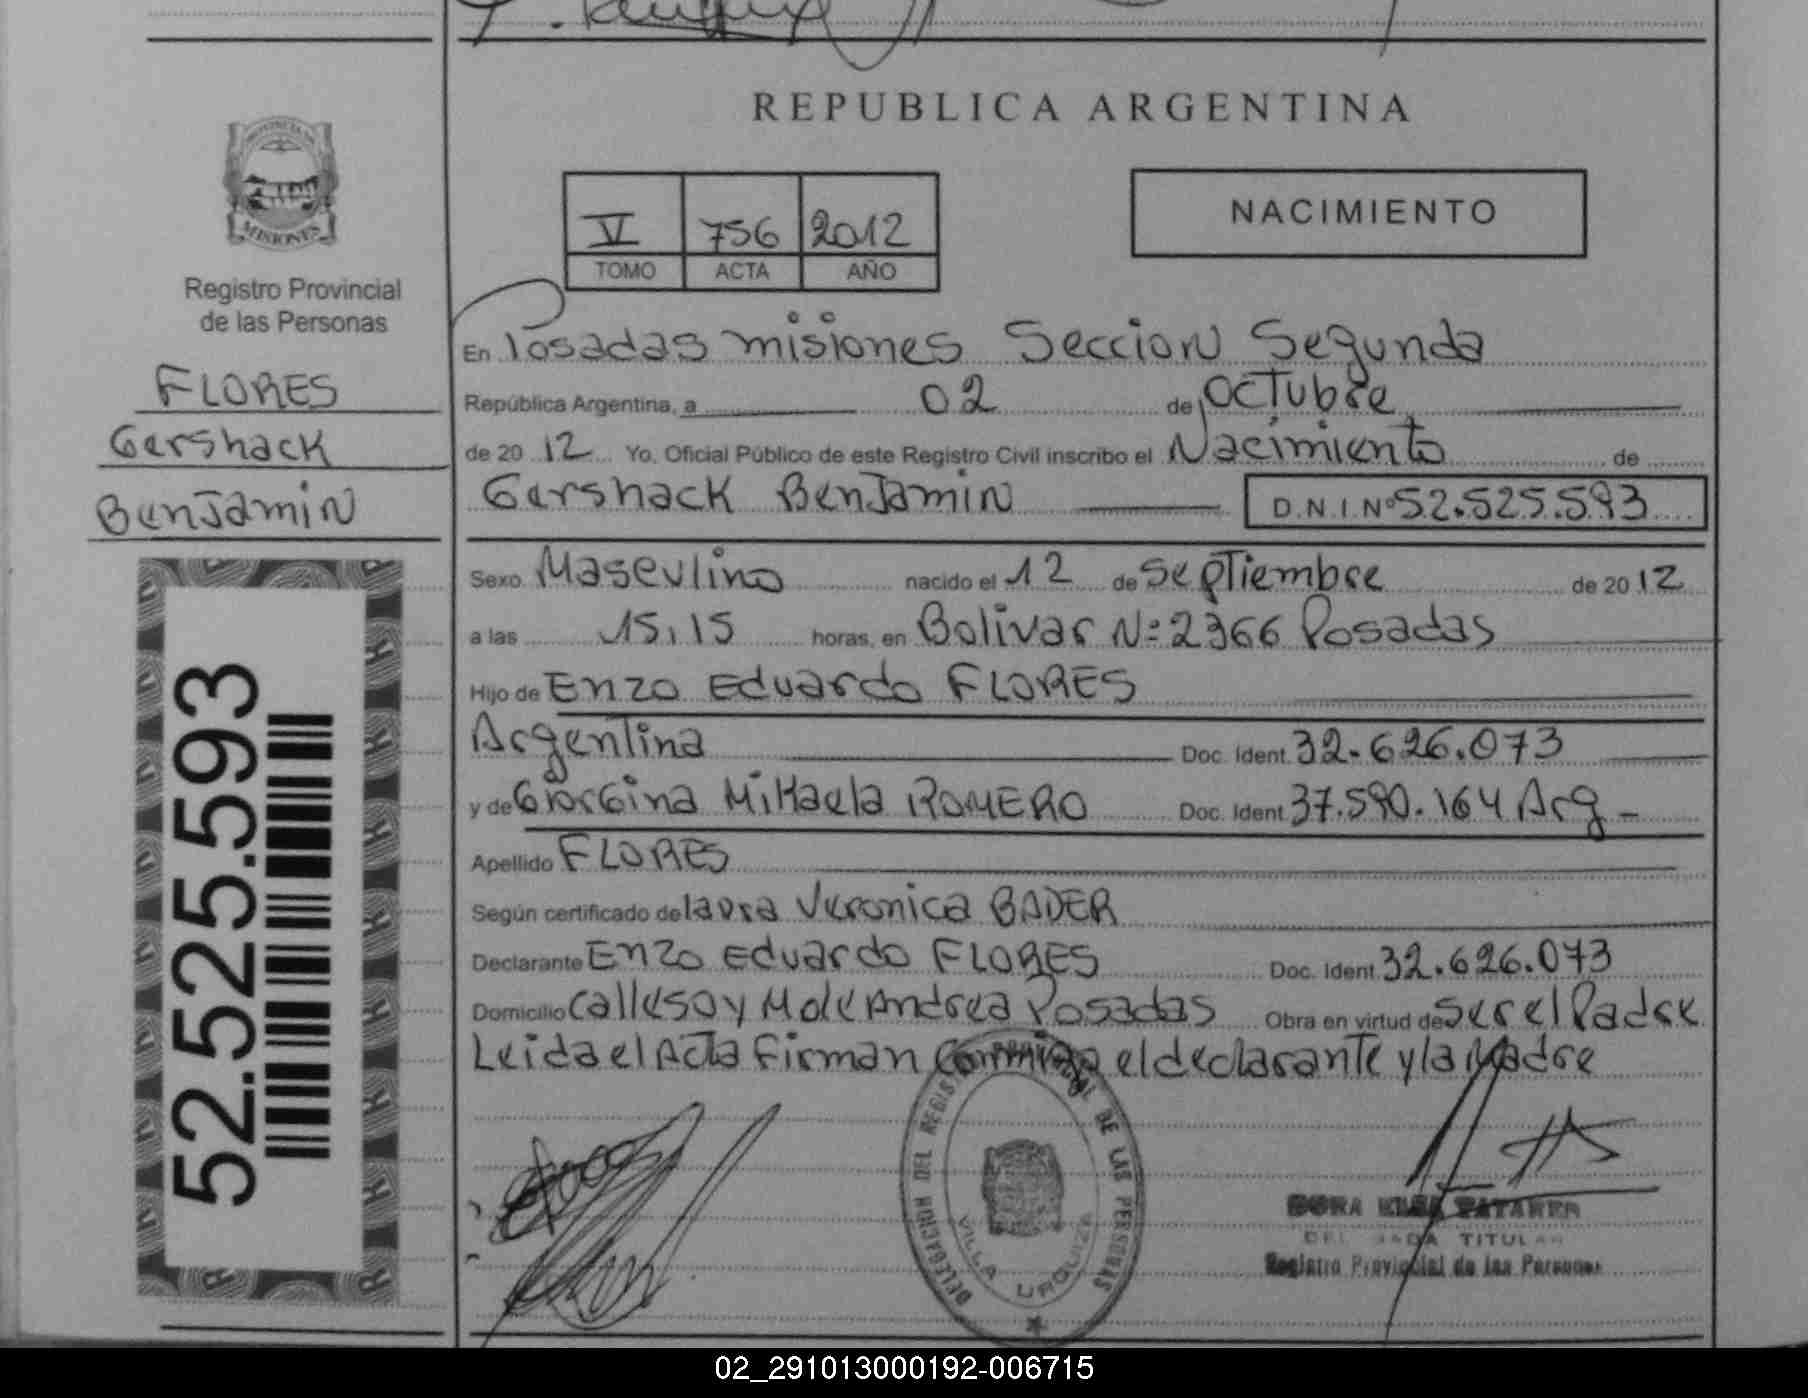 REPUBLICA ARGENTINA
PROVINCIA DE
MISIONES
Registro Provincial
de las Personas
FLORES
Gershack
Benjamin
52.525.593
V 756 2012
TOMO ACTA AÑO
NACIMIENTO
En Posadas misiones Seccion Segunda
República Argentina, a 02 de Octubre
de 20 12 Yo, Oficial Público de este Registro Civil inscribo el Nacimiento de
Gershack Benjamin D.N.I. Nº 52.525.593
Sexo Masculino nacido el 12 de Septiembre de 20 12
a las 15,15 horas, en Bolivar Nº 2366 Posadas
Hijo de Enzo Eduardo FLORES
Argentina Doc. Ident. 32.626.073
y de Giorgina Mikaela ROMERO Doc. Ident. 37.590.164 Arg -
Apellido FLORES
Según certificado de laura Veronica BADER
Declarante Enzo Eduardo FLORES Doc. Ident. 32.626.073
Domicilio Calle 50 y Posadas Obra en virtud de ser el Padre
Leida el Acta Firman Conmigo el declarante y la Madre
DELEGACION DEL REGISTRO PROVINCIAL DE LAS PERSONAS
VILLA URQUIZA
DORA ELSA
DELEGADA TITULAR
Registro Provincial de las Personas
02_291013000192-006715